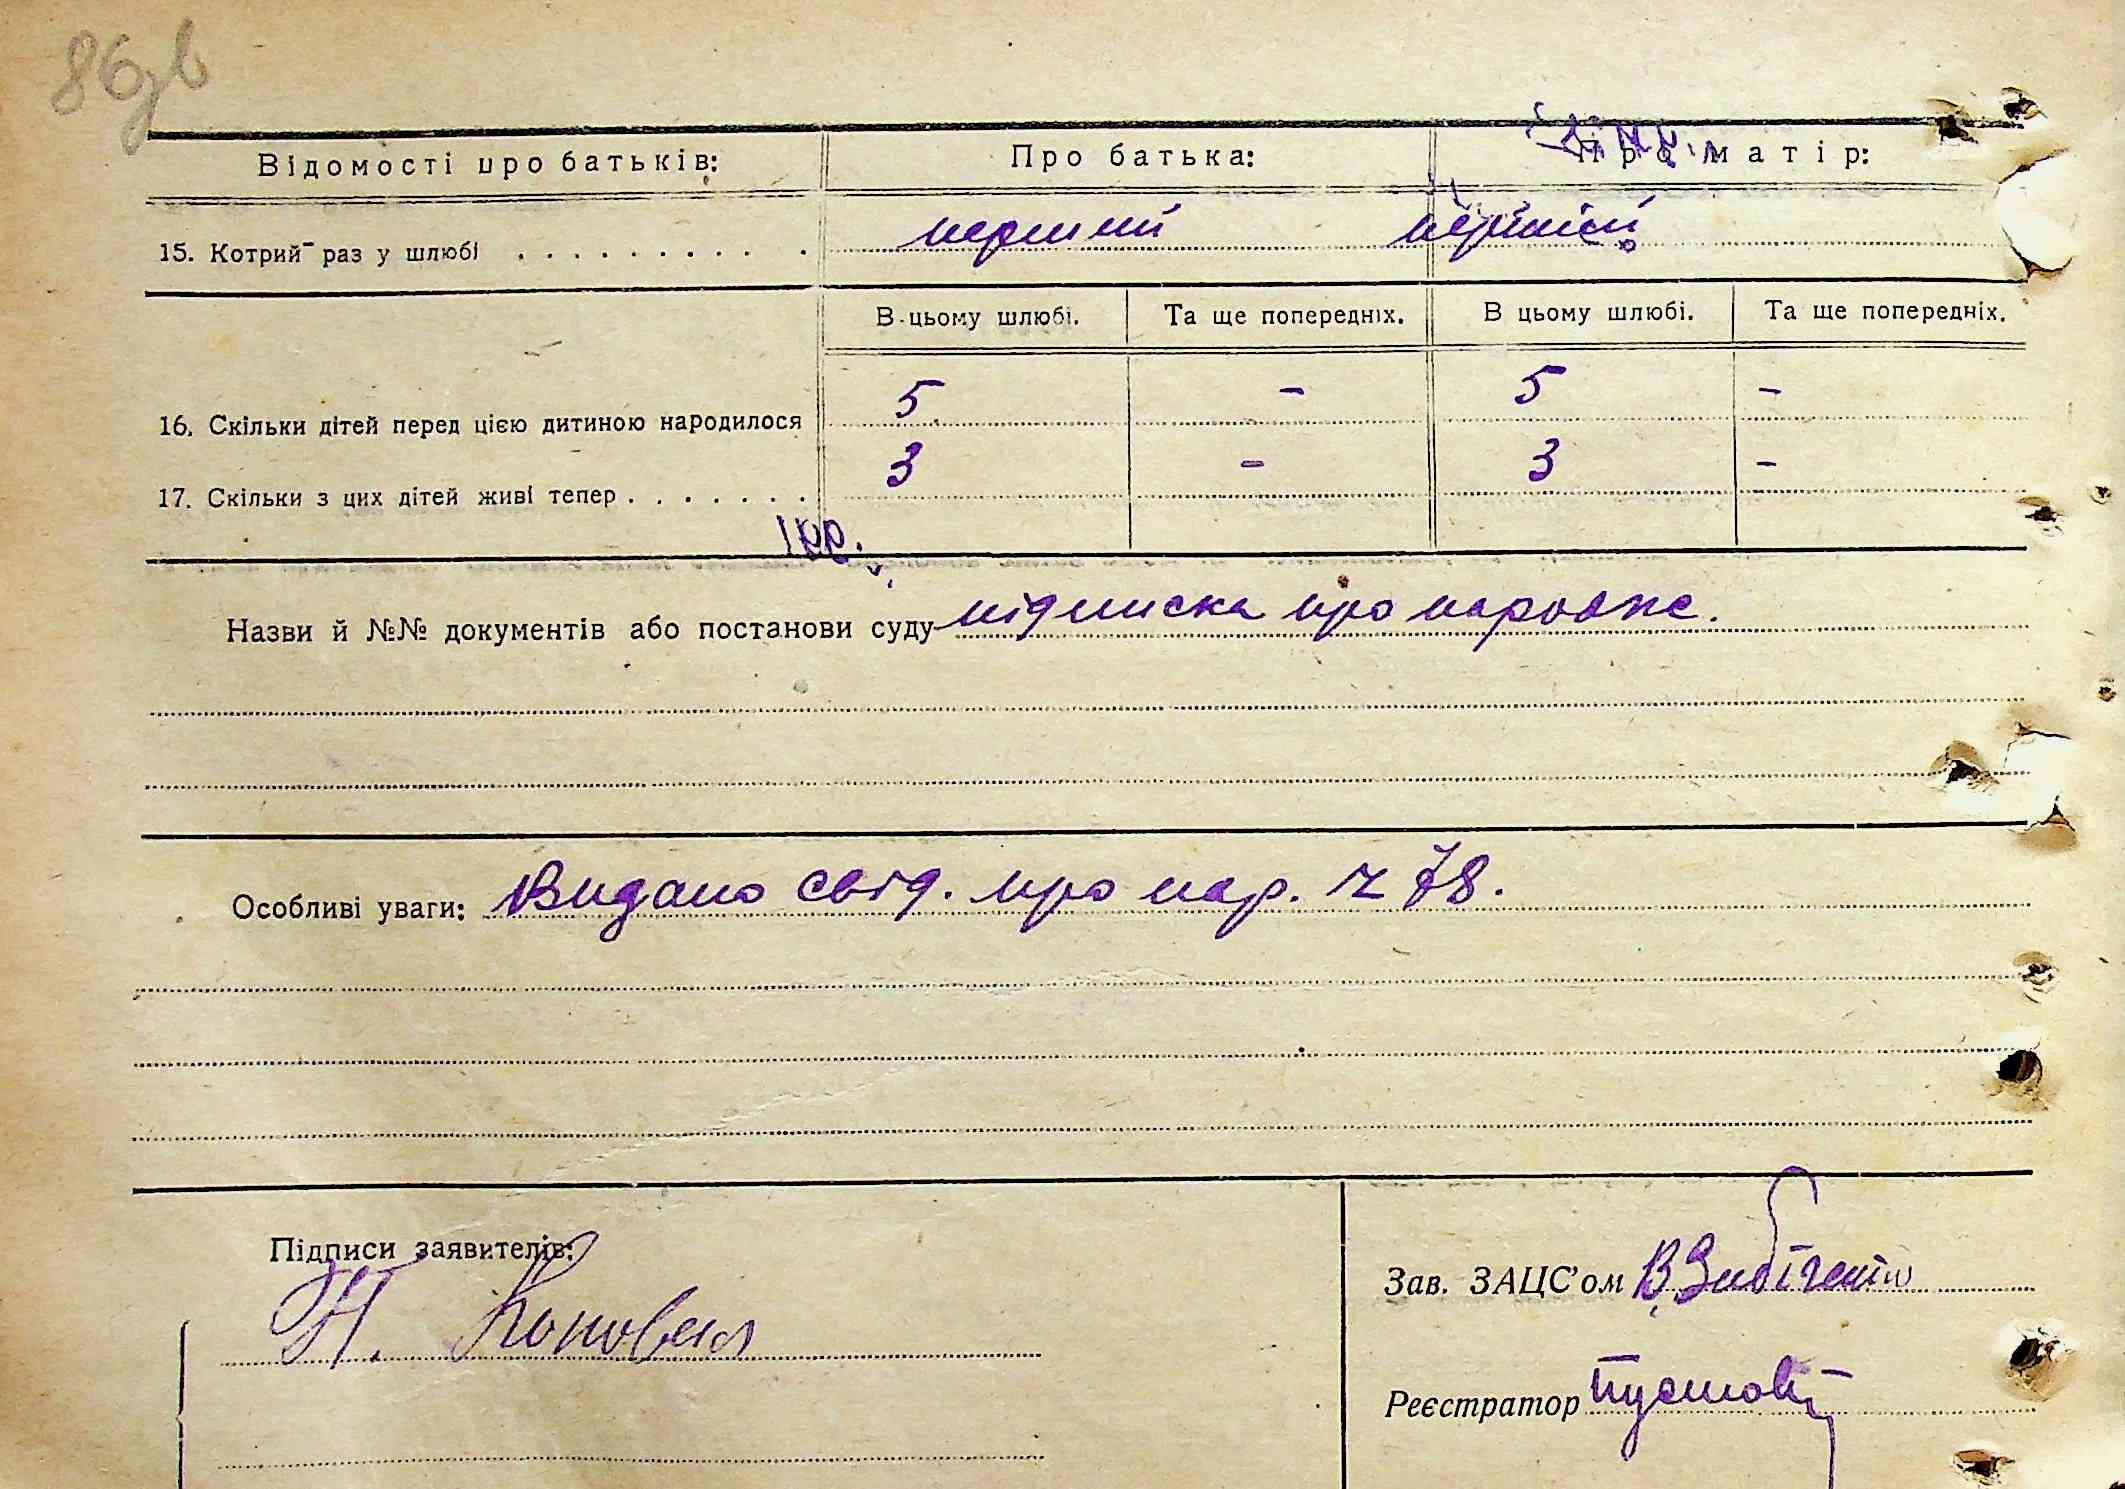 86
Відомості про батьків: Про батька: Про матір:
15. Котрий раз у шлюбі . . . . . . . . . . перший перший
В цьому шлюбі. Та ще попередніх. В цьому шлюбі. Та ще попередніх.
16. Скільки дітей перед цією дитиною народилося 5 - 5 -
17. Скільки з цих дітей живі тепер . . . . . . . 3 - 3 -
Назви й №№ документів або постанови суду підписка про народже.
Особливі уваги: Видано свід. про нар. ч 78.
Підписи заявителів:
Зав. ЗАЦС'ом В.
Реєстратор